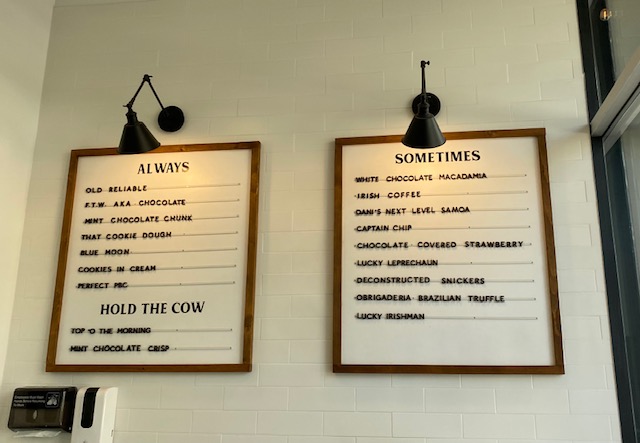 ALWAYS
OLD RELIABLE
F.T.W. AKA CHOCOLATE
MINT CHOCOLATE CHUNK
THAT COOKIE DOUGH
BLUE MOON
COOKIES IN CREAM
PERFECT PBC
HOLD THE COW
TOP 'O THE MORNING
MINT CHOCOLATE CRISP
SOMETIMES
WHITE CHOCOLATE MACADAMIA
IRISH COFFEE
DANI'S NEXT LEVEL SAMOA
CAPTAIN CHIP
CHOCOLATE COVERED STRAWBERRY
LUCKY LEPRECHAUN
DECONSTRUCTED SNICKERS
OBRIGADERIA BRAZILIAN TRUFFLE
LUCKY IRISHMAN